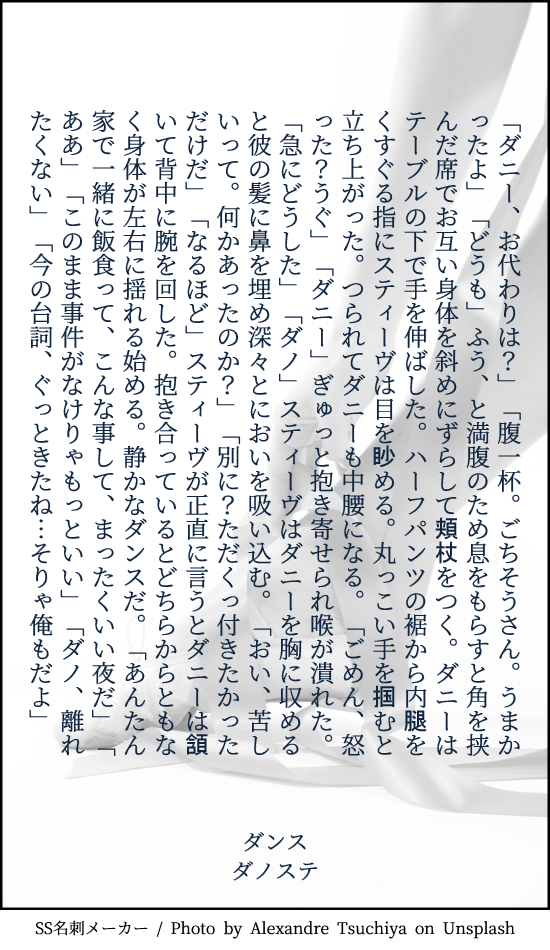 「ダニー、お代わりは？」「腹一杯。ごちそうさん。うまか
ったよ」「どうも」ふう、と満腹のため息をもらすと角を挟
んだ席でお互い身体を斜めにずらして頬杖をつく。ダニーは
テーブルの下で手を伸ばした。ハーフパンツの裾から内腿を
くすぐる指にスティーヴは目を眇める。丸っこい手を掴むと
立ち上がった。つられてダニーも中腰になる。「ごめん、怒
った？うぐ」「ダニー」ぎゅっと抱き寄せられ喉が潰れた。
「急にどうした」「ダノ」スティーヴはダニーを胸に収める
と彼の髪に鼻を埋め深々とにおいを吸い込む。「おい、苦し
いって。何かあったのか？」「別に？ただくっ付きたかった
だけだ」「なるほど」スティーヴが正直に言うとダニーは頷
いて背中に腕を回した。抱き合っているとどちらからともな
く身体が左右に揺れる始める。静かなダンスだ。「あんたん
家で一緒に飯食って、こんな事して、まったくいい夜だ」「
ああ」「このまま事件がなけりゃもっといい」「ダノ、離れ
たくない」「今の台詞、ぐっときたね…そりゃ俺もだよ」
ダンス
ダノステ
SS名刺メーカー / Photo by Alexandre Tsuchiya on Unsplash